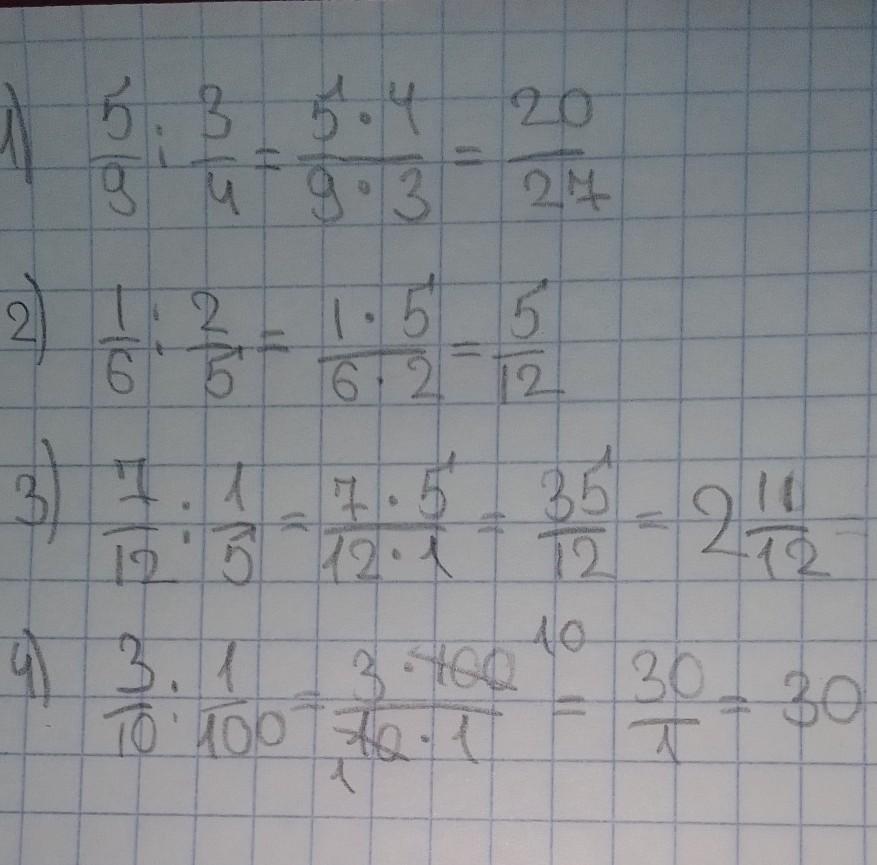 1) 5/9 : 3/4 = 5·4/9·3 = 20/27
2) 1/6 : 2/5 = 1·5/6·2 = 5/12
3) 7/12 : 1/5 = 7·5/12·1 = 35/12 = 2 11/12 =
4) 3/10 : 1/100 = 3·100 10/10 1·1 = 30/1 = 30